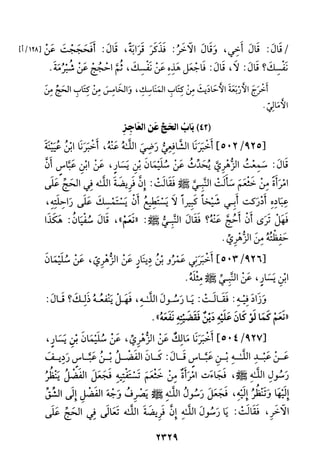 / قَالَ: قَالَ أَخِي، وَقَالَ الآخَرُ: فَذَكَرَ قَرَابَةً، قَالَ: أَفَحَجَجْتَ عَنْ [١٢٨/أ]
نَفْسِكَ؟ قَالَ: لَا، قَالَ: فَاجْعَلْ هَذِهِ عَنْ نَفْسِكَ، ثُمَّ احْجُجْ عَنْ شُبْرُمَةَ.
أَخْرَجَ الأَرْبَعَةَ الأَحَادِيثَ مِنْ كِتَابِ المَنَاسِكِ، وَالخَامِسَ مِنْ كِتَابِ الحَجِّ مِنَ
الأَمَالِي.
(٤٢) بَابُ الحَجِّ عَنِ العَاجِزِ
[٥٠٢/٩٢٥] أَخْبَرَنَا الشَّافِعِيُّ رَضِيَ اللهُ عَنْهُ، أَخْبَرَنَا ابْنُ عُيَيْنَةَ
قَالَ: سَمِعْتُ الزُّهْرِيَّ يُحَدِّثُ عَنْ سُلَيْمَانَ بْنِ يَسَارٍ، عَنِ ابْنِ عَبَّاسٍ أَنَّ
امْرَأَةً مِنْ خَثْعَمَ سَأَلَتِ النَّبِيَّ ﷺ فَقَالَتْ: إِنَّ فَرِيضَةَ اللهِ فِي الحَجِّ عَلَى
عِبَادِهِ أَدْرَكَتْ أَبِي شَيْخاً كَبِيراً لَا يَسْتَطِيعُ أَنْ يَسْتَمْسِكَ عَلَى رَاحِلَتِهِ،
فَهَلْ تَرَى أَنْ أَحُجَّ عَنْهُ؟ فَقَالَ النَّبِيُّ ﷺ: «نَعَمْ»، قَالَ سُفْيَانُ: هَكَذَا
حَفِظْتُهُ مِنَ الزُّهْرِيِّ.
[٥٠٣/٩٢٦] أَخْبَرَنِي عَمْرُو بْنُ دِينَارٍ، عَنِ الزُّهْرِيِّ، عَنْ سُلَيْمَانَ
ابْنِ يَسَارٍ، عَنِ النَّبِيِّ ﷺ مِثْلَهُ.
وَزَادَ فِيْهِ: فَقَالَتْ: يَا رَسُولَ اللهِ، فَهَلْ يَنْفَعُهُ ذَلِكَ؟ قَالَ:
«نَعَمْ كَمَا لَوْ كَانَ عَلَيْهِ دَيْنٌ فَقَضَيْتِهِ نَفَعَهُ».
[٥٠٤/٩٢٧] أَخْبَرَنَا مَالِكٌ عَنِ الزُّهْرِيِّ، عَنْ سُلَيْمَانَ بْنِ يَسَارٍ،
عَنْ عَبْدِ اللهِ بْنِ عَبَّاسٍ قَالَ: كَانَ الفَضْلُ بْنُ عَبَّاسٍ رَدِيفَ
رَسُولِ اللهِ ﷺ، فَجَاءَتِ امْرَأَةٌ مِنْ خَثْعَمَ تَسْتَفْتِيهِ، فَجَعَلَ الفَضْلُ يَنْظُرُ
إِلَيْهَا وَتَنْظُرُ إِلَيْهِ، فَجَعَلَ رَسُولُ اللهِ ﷺ يَصْرِفُ وَجْهَ الفَضْلِ إِلَى الشِّقِّ
الآخَرِ، فَقَالَتْ: يَا رَسُولَ اللهِ إِنَّ فَرِيضَةَ اللهِ تَعَالَى فِي الحَجِّ عَلَى
٢٣٢٩